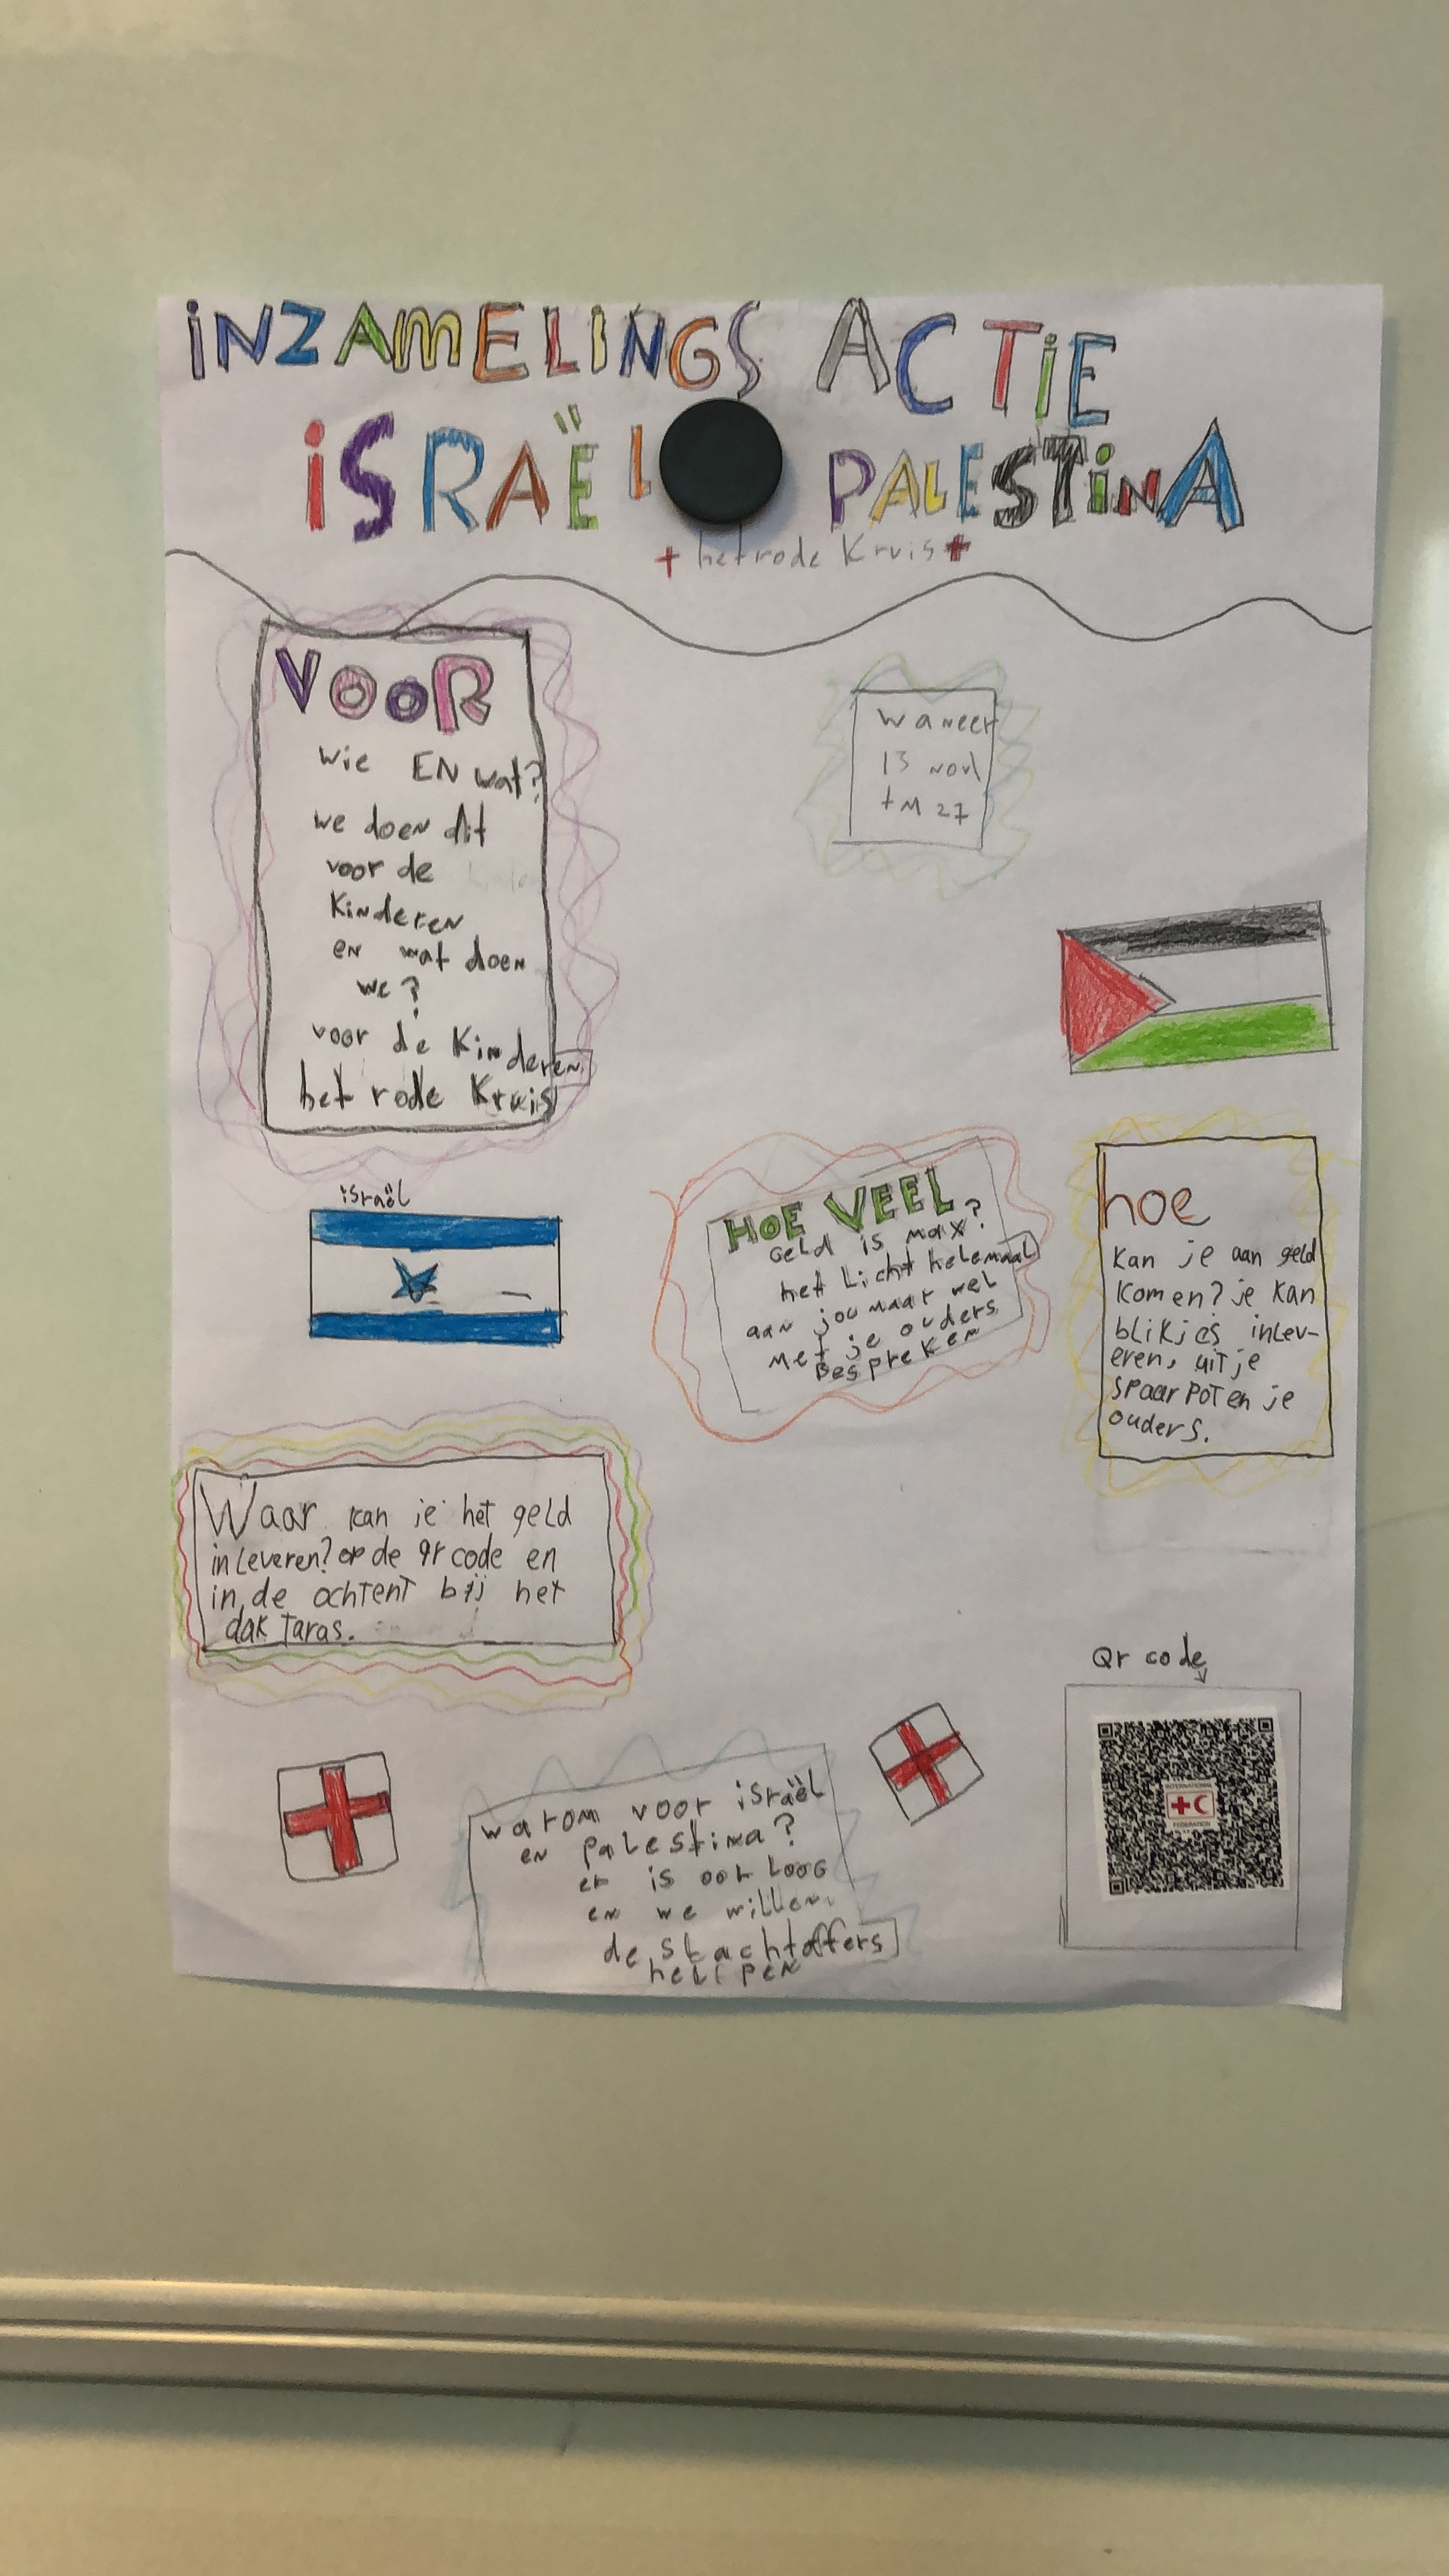 iNZAMELINGS ACTiE
iSRAËL PALESTiNA
+ het rode Kruis +
VOOR
wie EN wat?
we doen dit
voor de
Kinderen
en wat doen
we?
voor de Kinderen
het rode Kruis
waneer
13 nov
tm 27
israël
HOE VEEL
geld is max?
het Licht helemaal
aan jou maar wel
met je ouders
Bespreken
hoe
Kan je aan geld
Komen? je Kan
blikjes inlev-
eren, uit je
spaarpot en je
ouders.
Waar kan je het geld
inleveren? op de qr code en
in de ochtent bij het
dak taras.
Qr code
INTERNATIONAL
FEDERATION
warom voor israël
en palestina?
er is oorloog
en we willen
de slachtoffers
helpen